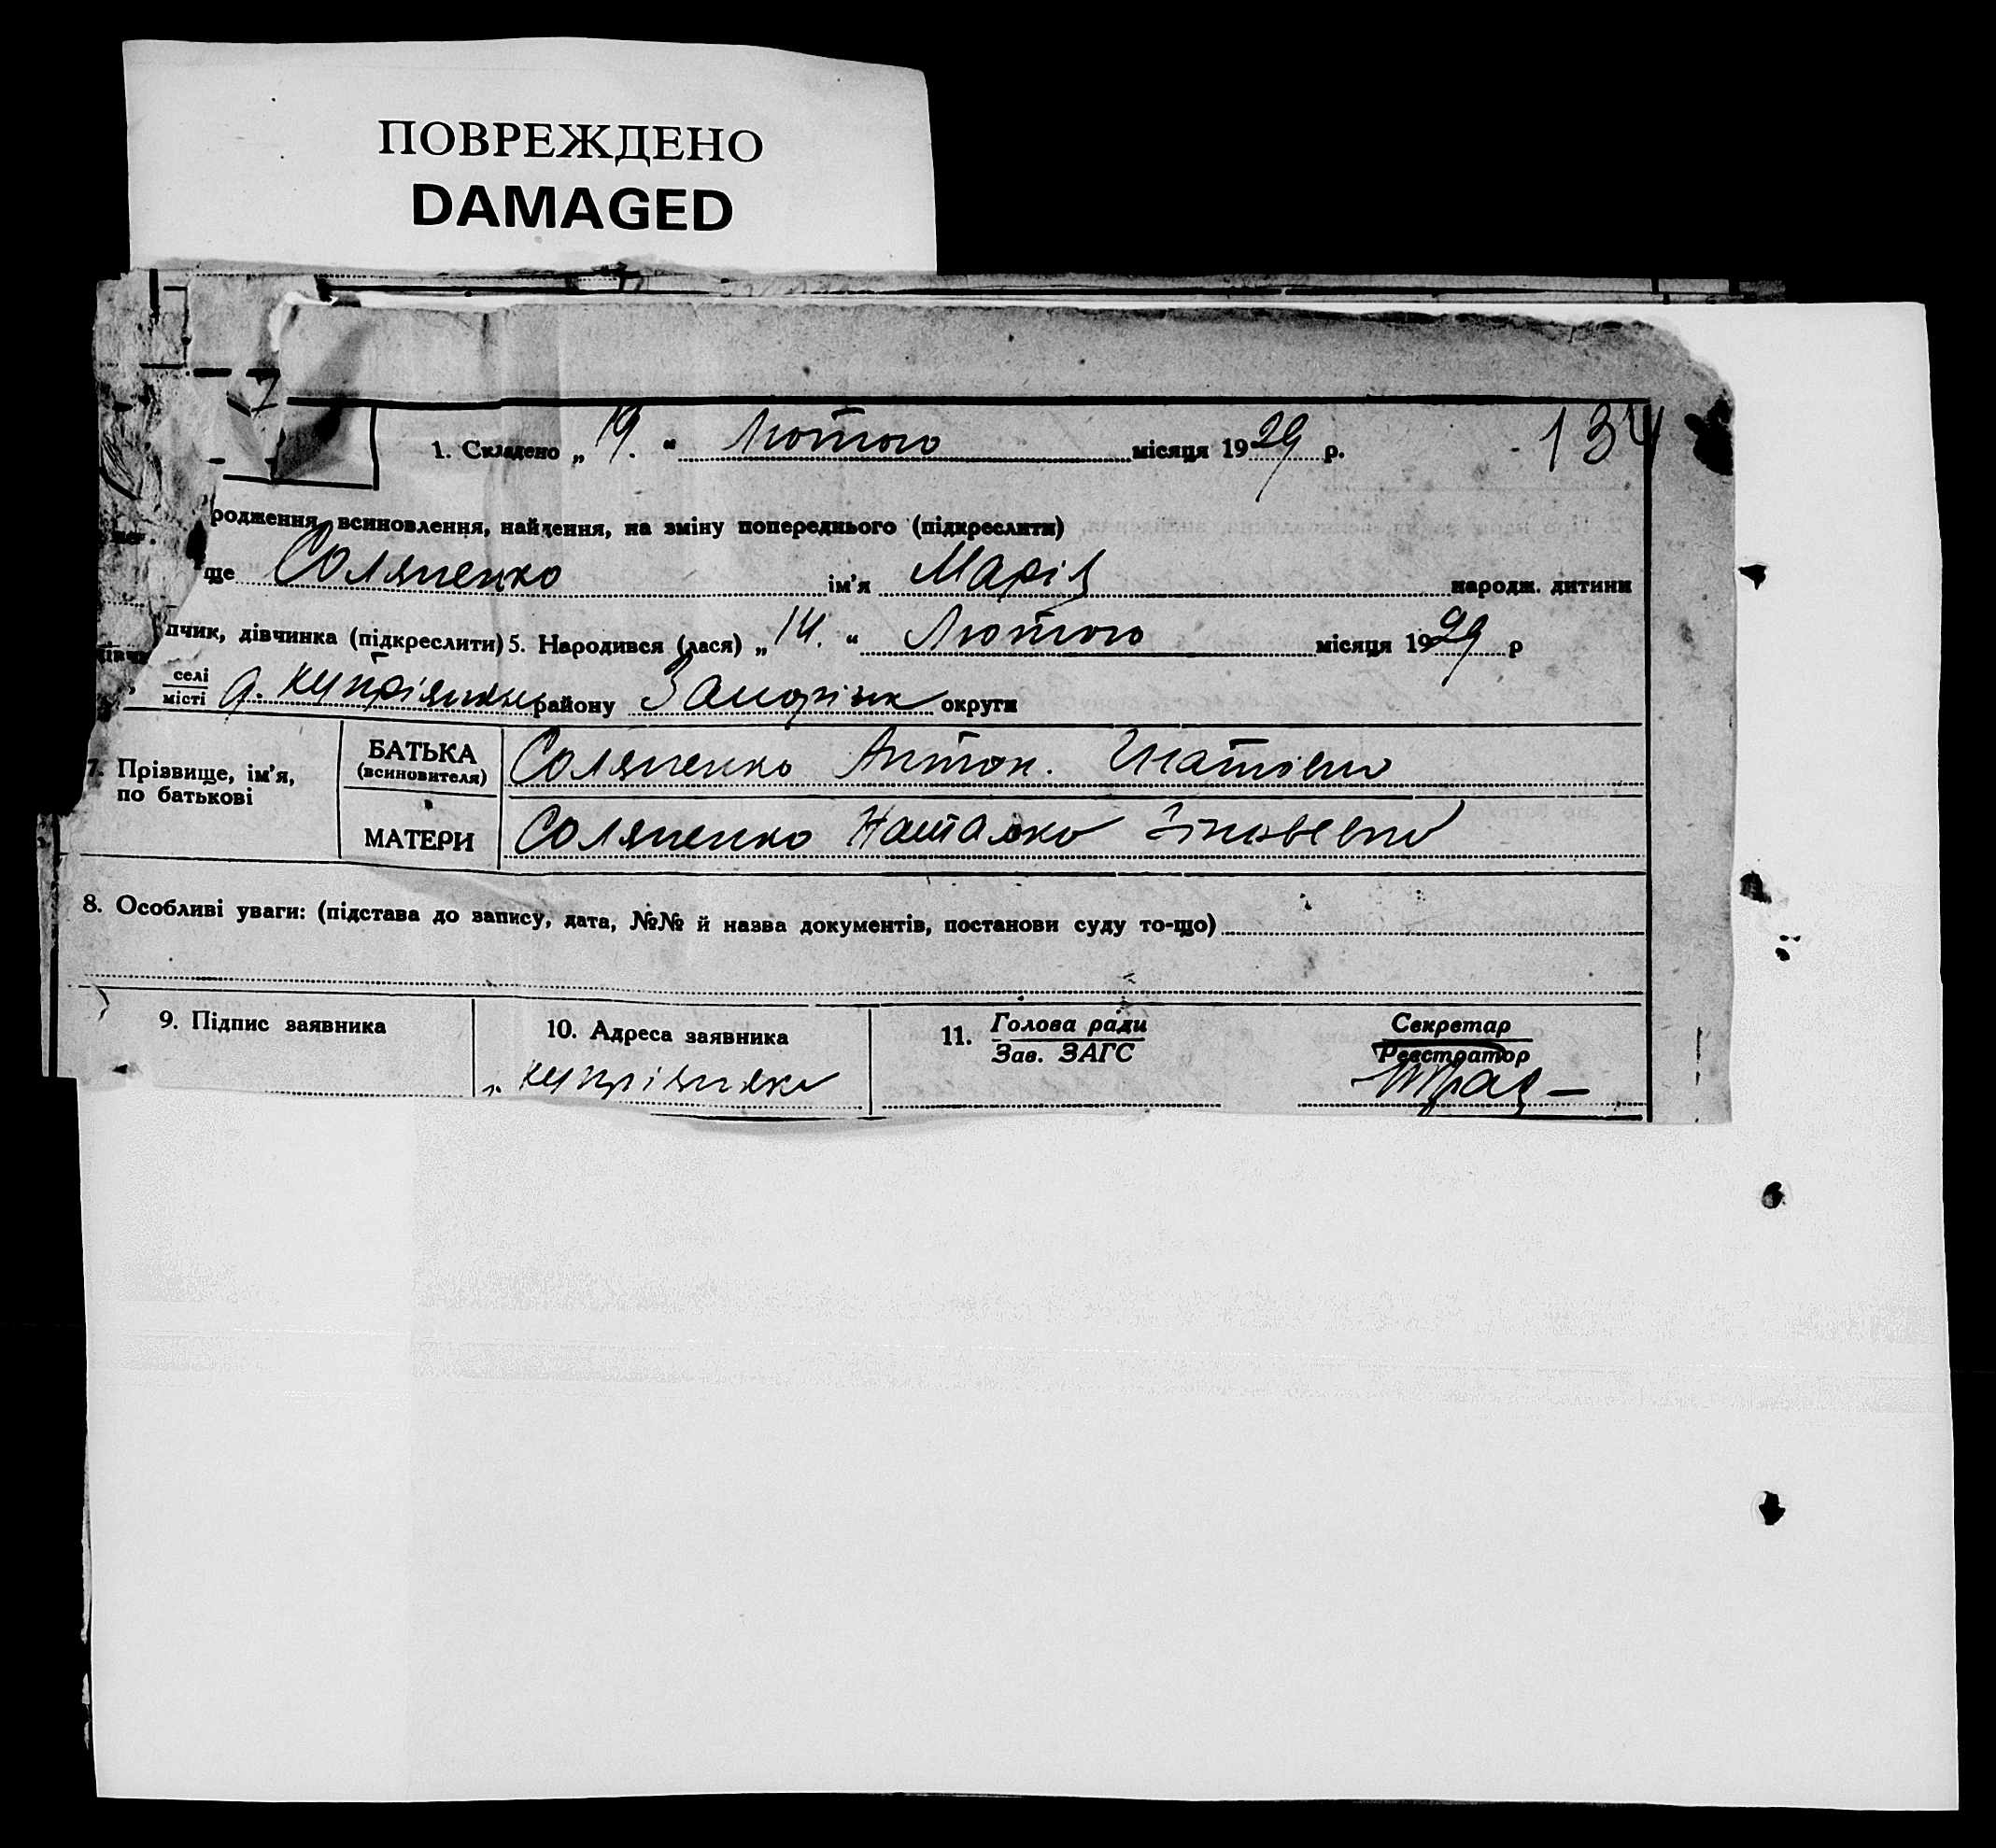 ПОВРЕЖДЕНО
DAMAGED
1. Складено „ 19. “ Лютого місяця 1929 р. 134
родження, всиновлення, найдення, на зміну попереднього (підкреслити)
ще Соляненко ім’я Марія народж. дитини
пчик, дівчинка (підкреслити) 5. Народився (лася) „ 14. “ Лютого місяця 1929 р
селі
місті
району Запорізьк округи
7. Прізвище, ім’я,
по батькові
БАТЬКА
(всиновителя)
Соляненко Антон. Гнатович
МАТЕРИ
Соляненко Наталка
8. Особливі уваги: (підстава до запису, дата, №№ й назва документів, постанови суду то-що)
9. Підпис заявника
10. Адреса заявника
11. Голова ради
Зав. ЗАГС
Секретар
Реєстратор